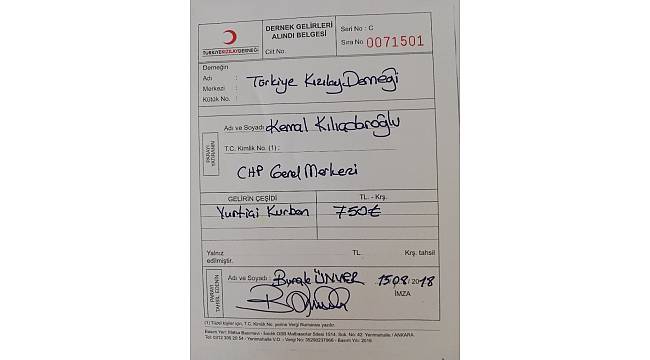 DERNEK GELİRLERİ
ALINDI BELGESİ
Seri No : C
TÜRKİYE KIZILAY DERNEĞİ
Cilt No.
Sıra No 0071501
Derneğin
Adı :
Merkezi :
Kütük No. :
Türkiye Kızılay Derneği
PARAYI YATIRANIN
Adı ve Soyadı : Kemal Kılıçdaroğlu
T.C. Kimlik No. (1) :
CHP Genel Merkezi
GELİRİN ÇEŞİDİ
TL. - Krş.
Yurtiçi Kurban 750
Yalnız TL. Krş. tahsil
edilmiştir.
PARAYI TAHSİL EDENİN
Adı ve Soyadı : Burak ÜNVER 15.08/2018
İMZA
(1) Tüzel kişiler için, T.C. Kimlik No. yerine Vergi Numarası yazılır.